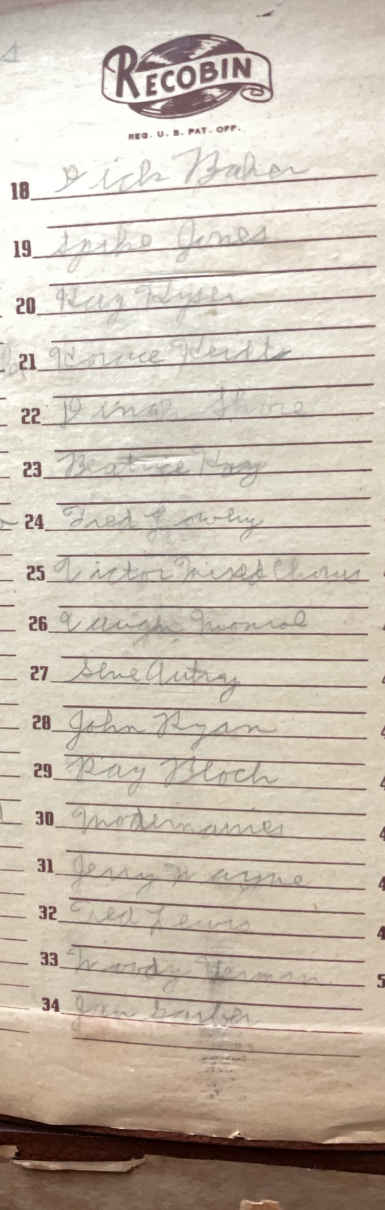 RECOBIN
REG. U. S. PAT. OFF.
18 Dick Baker
19 Spike Jones
20 Kay Kyser
21 Horace Heidt
22 Dinah Shore
23 Beatrice Kay
24 Fred Lowery
25 Victor Mixed Chorus
26 Vaughn Monroe
27 Gene Autray
28 John Ryan
29 Ray Bloch
30 Modernaires
31 Jerry Wayne
32 Ted Lewis
33 Woody Herman
34 Jan Garber